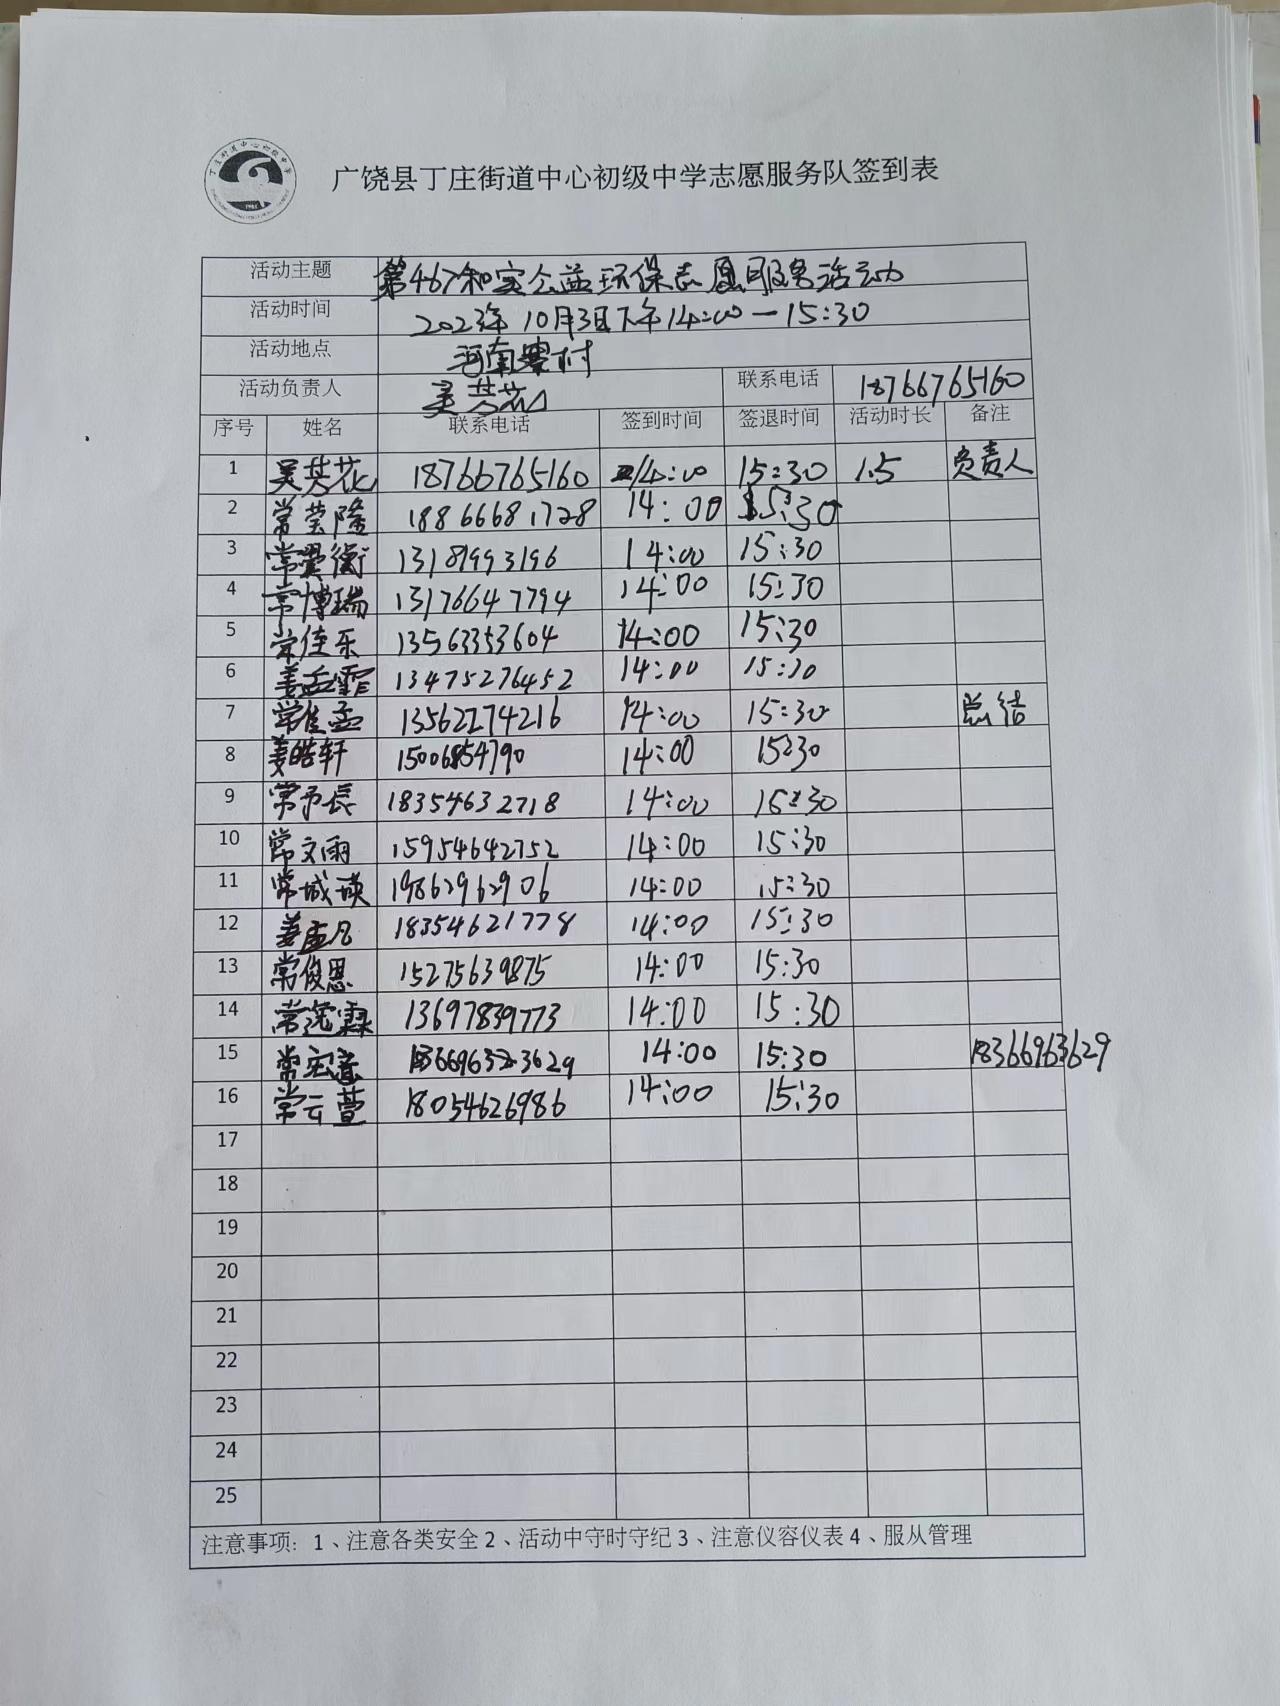 广饶县丁庄街道中心初级中学志愿服务队签到表
活动主题 第467和实公益环保志愿服务活动
活动时间 2023年10月3日下午14:00—15:30
活动地点 河南寨村
活动负责人 吴芸花 联系电话 18766765160
序号 姓名 联系电话 签到时间 签退时间 活动时长 备注
1 吴芸花 18766765160 14:00 15:30 1.5 负责人
2 常莹隆 18866681728 14:00 15:30
3 常衡 13181993196 14:00 15:30
4 常博瑞 13176647794 14:00 15:30
5 常佳乐 13563353604 14:00 15:30
6 姜岳霏 13475276452 14:00 15:30
7 常佳孟 13562274216 14:00 15:30 总结
8 姜皓轩 15006854790 14:00 15:30
9 常予辰 18354632718 14:00 15:30
10 常文雨 15954642752 14:00 15:30
11 常城瑛 19862962906 14:00 15:30
12 姜孟凡 18354621778 14:00 15:30
13 常俊恩 15275639875 14:00 15:30
14 常霖 13697839773 14:00 15:30
15 常宏意 14:00 15:30 18366963629
16 常云萱 18054626986 14:00 15:30
17
18
19
20
21
22
23
24
25
注意事项：1、注意各类安全 2、活动中守时守纪 3、注意仪容仪表 4、服从管理